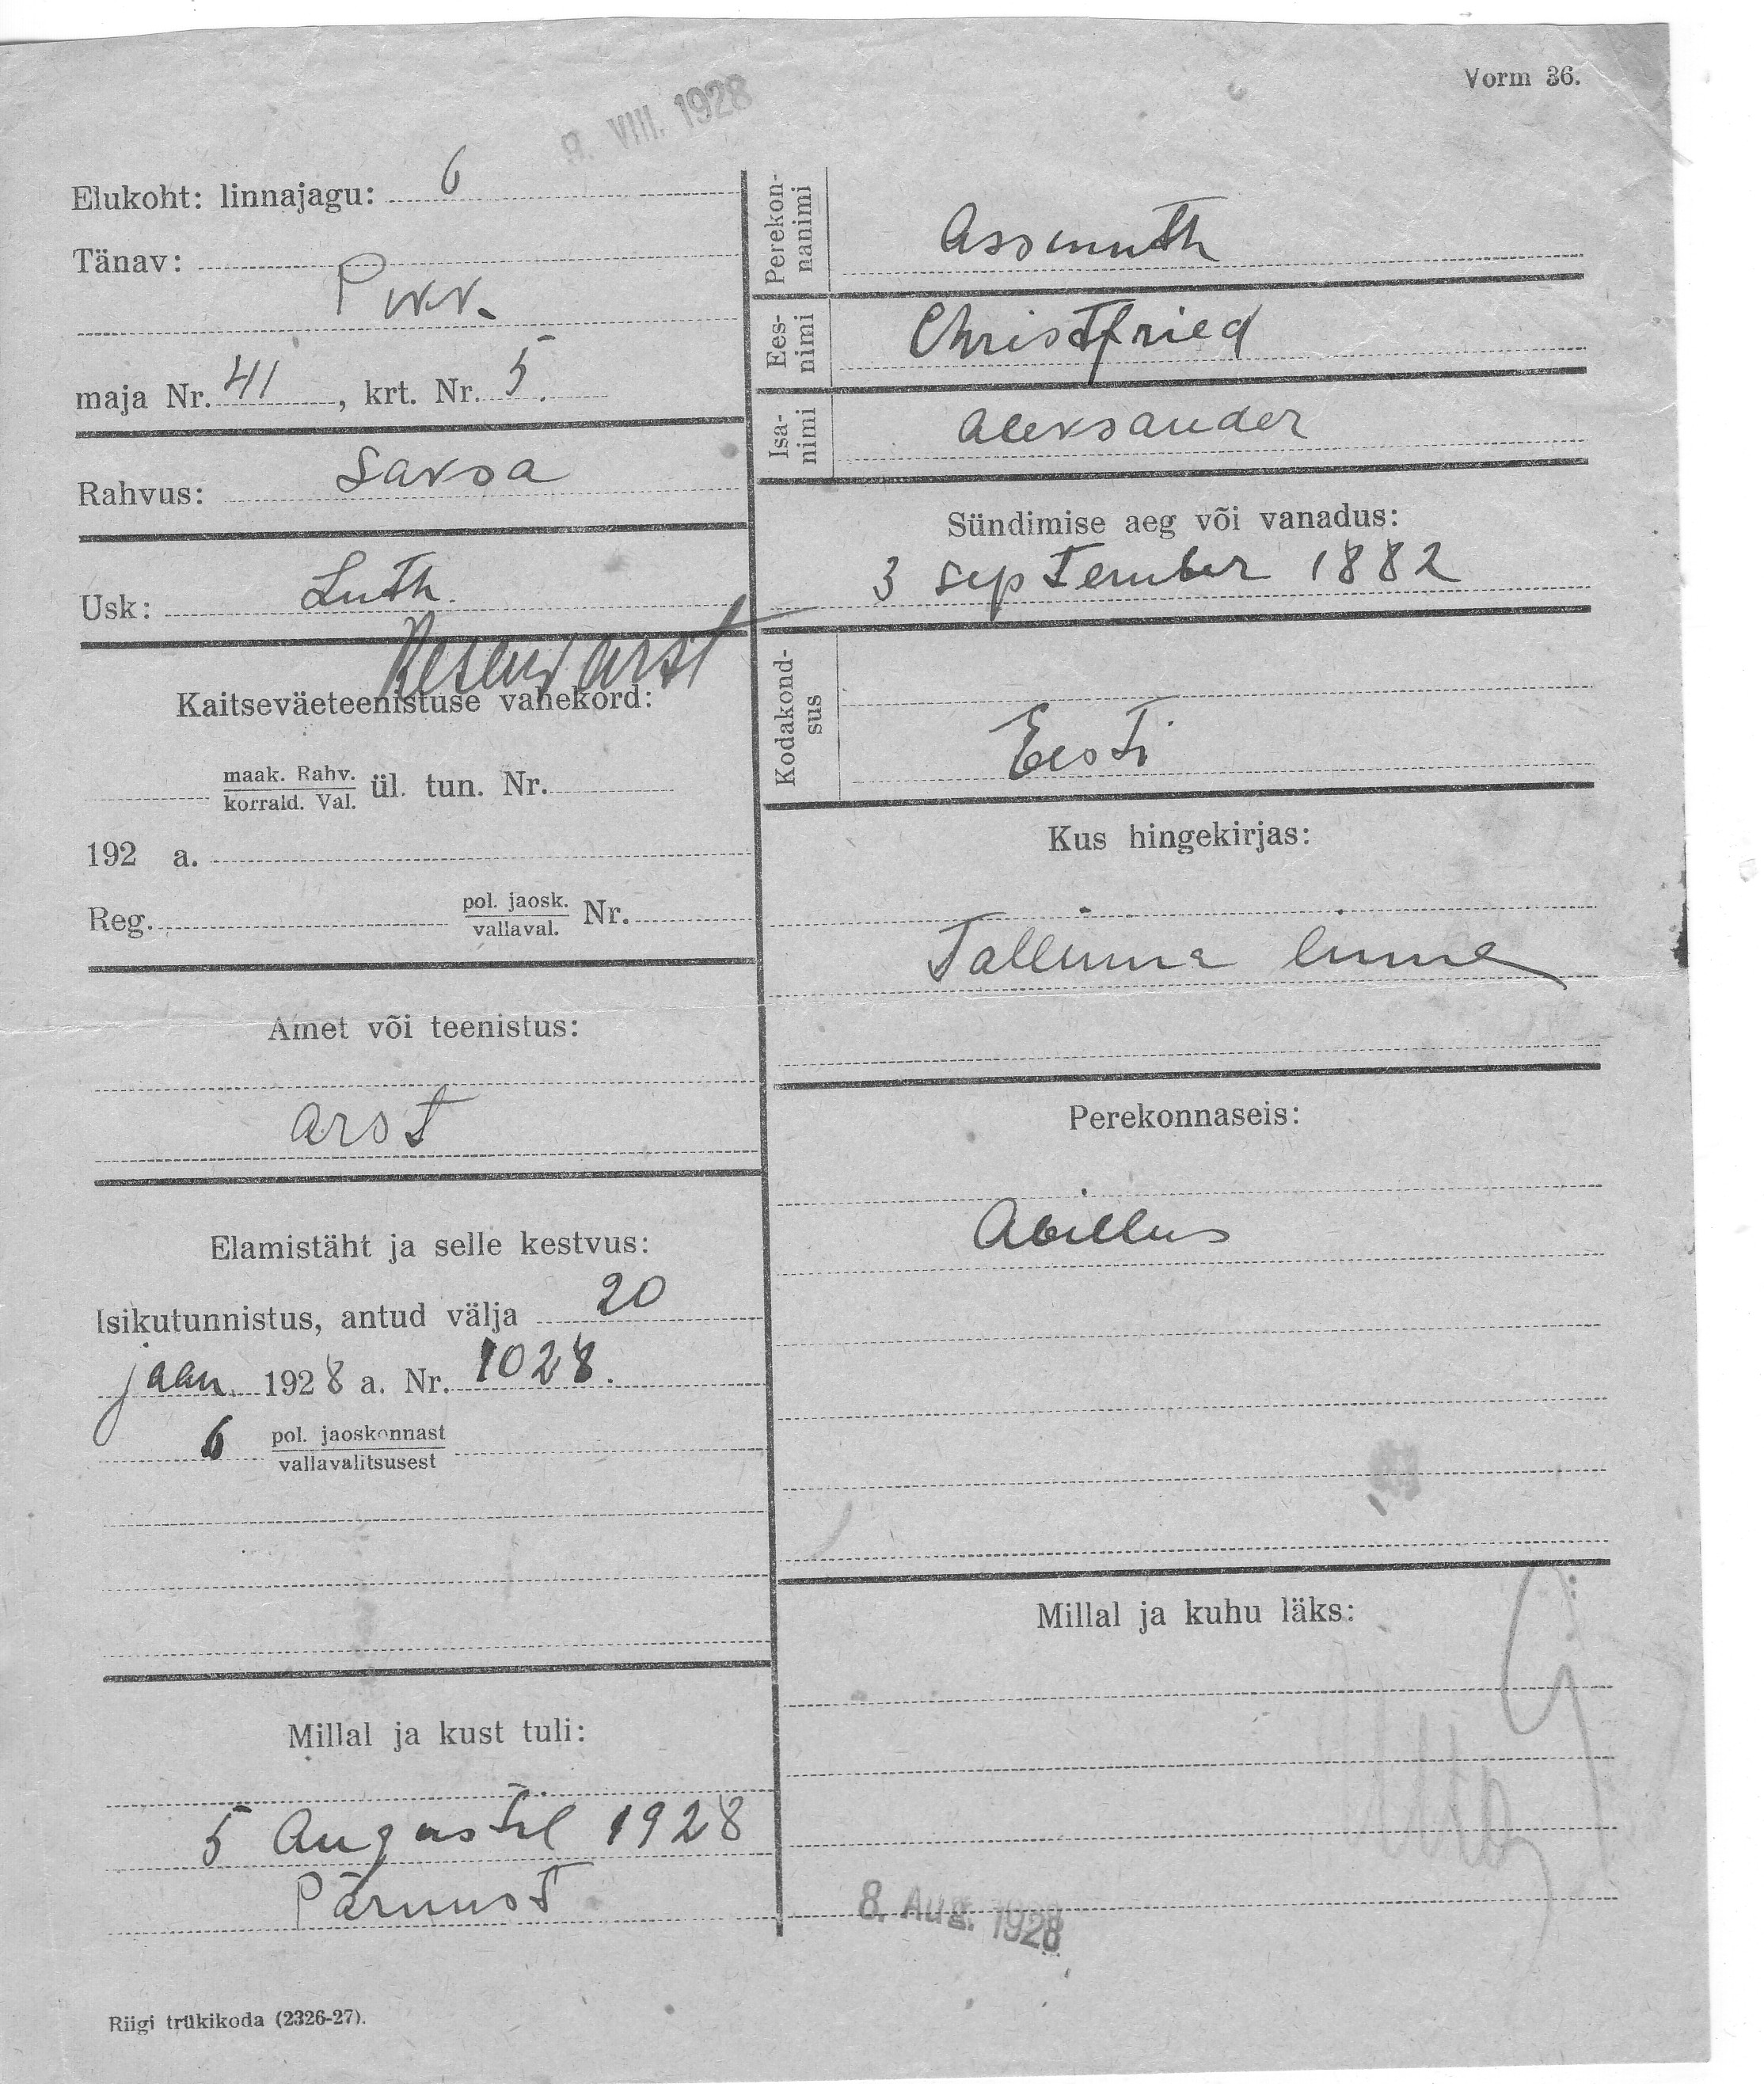 Vorm 36.
VIII. 1928
Elukoht: linnajagu: 6
Tänav:
Pikk.
maja Nr. 41, krt. Nr. 5.
Rahvus: Saksa
Usk: Luth.
Reserv arst
Kaitseväeteenistuse vahekord:
maak. Rahv.
korrald. Val. ül. tun. Nr.
192 a.
Reg. pol. jaosk.
vallaval. Nr.
Amet või teenistus:
arst
Elamistäht ja selle kestvus:
Isikutunnistus, antud välja 20
jaan. 1928 a. Nr. 1028.
6 pol. jaoskonnast
vallavalitsusest
Millal ja kust tuli:
5 Augustil 1928
Pärnust
Riigi trükikoda (2326-27).
Perekon-
nanimi
Assmuth
Ees-
nimi
Christfried
Isa-
nimi
Aleksander
Sündimise aeg või vanadus:
3 september 1882
Kodakond-
sus
Eesti
Kus hingekirjas:
Tallinna linna
Perekonnaseis:
Abielus
Millal ja kuhu läks:
8. Aug. 1928